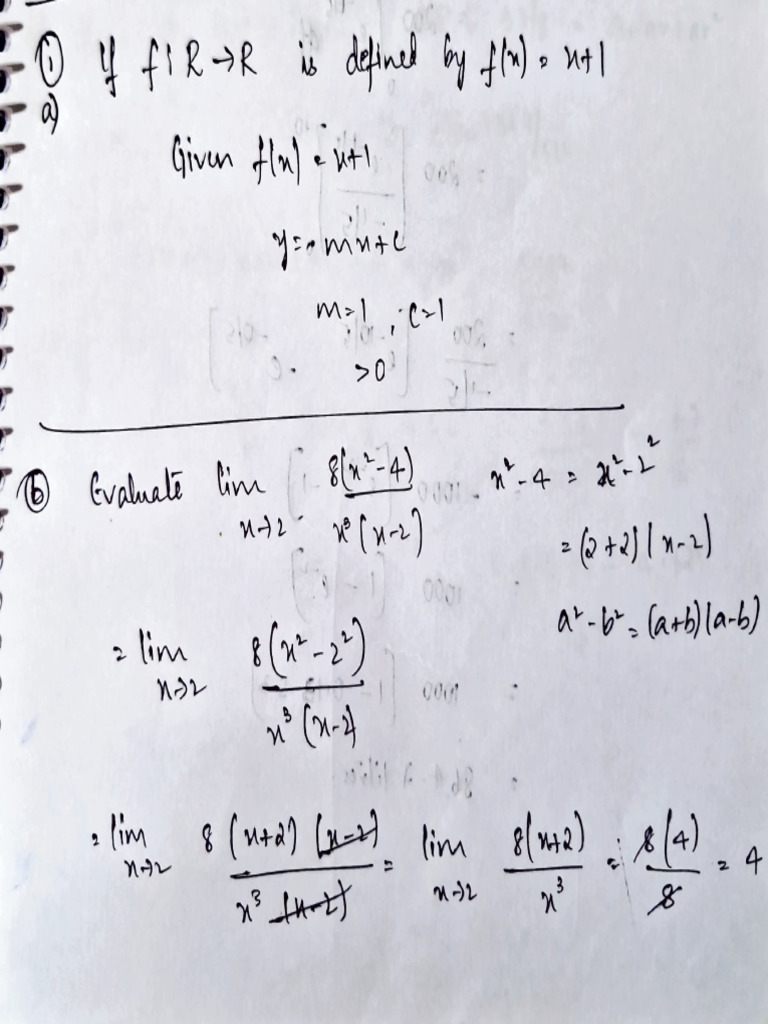 ① If f: R → R is defined by f(x) = x+1
a)
Given f(x) = x+1
y = mx+c
m=1, c=1
>0
ⓑ Evaluate lim x→2 8(x²-4) / x³(x-2) x²-4 = x²-2²
= (2+2)(x-2)
a²-b² = (a+b)(a-b)
= lim x→2 8(x²-2²) / x³(x-2)
= lim x→2 8(x+2)(x-2) / x³(x-2) = lim x→2 8(x+2) / x³ = 8(4) / 8 = 4